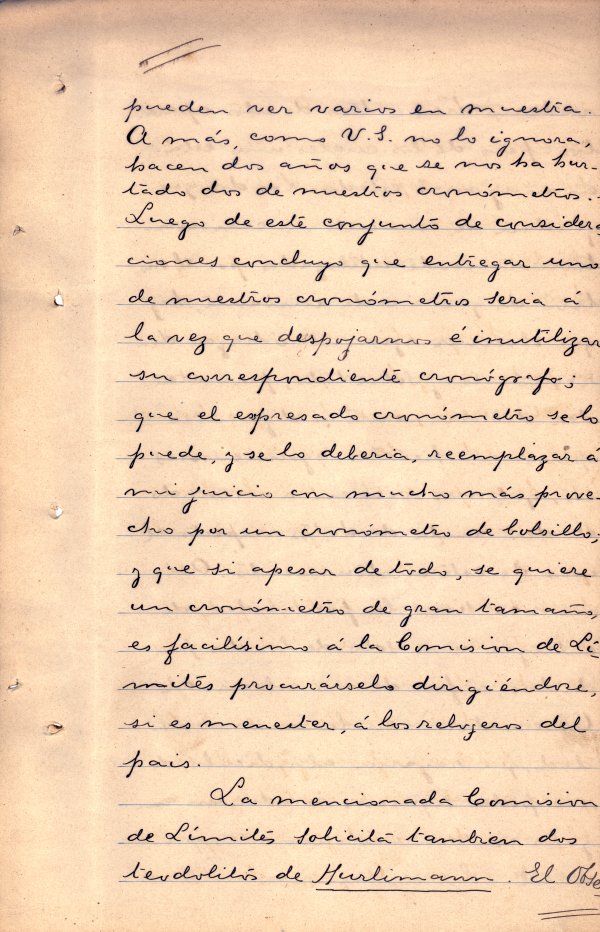 pueden ver varios en muestra.
A más, como V.S. no lo ignora,
hacen dos años que se nos ha hur-
tado dos de nuestros cronómetros.
Luego de este conjunto de considera
ciones concluyo que entregar uno
de nuestros cronómetros seria á
la vez que despojarnos é inutilizar
su correspondiente cronógrafo;
que el espresado cronómetro se lo
puede, y se lo deberia, reemplazar á
mi juicio con mucho más prove-
cho por un cronómetro de bolsillo;
y que si apesar de todo, se quiere
un cronómetro de gran tamaño,
es facilísimo á la Comision de Lí-
mites procurárselo dirigiéndose,
si es menester, á los relojeros del
pais.
La mencionada Comision
de Límites solicita tambien dos
teodolitos de Hurlimann. El Obse